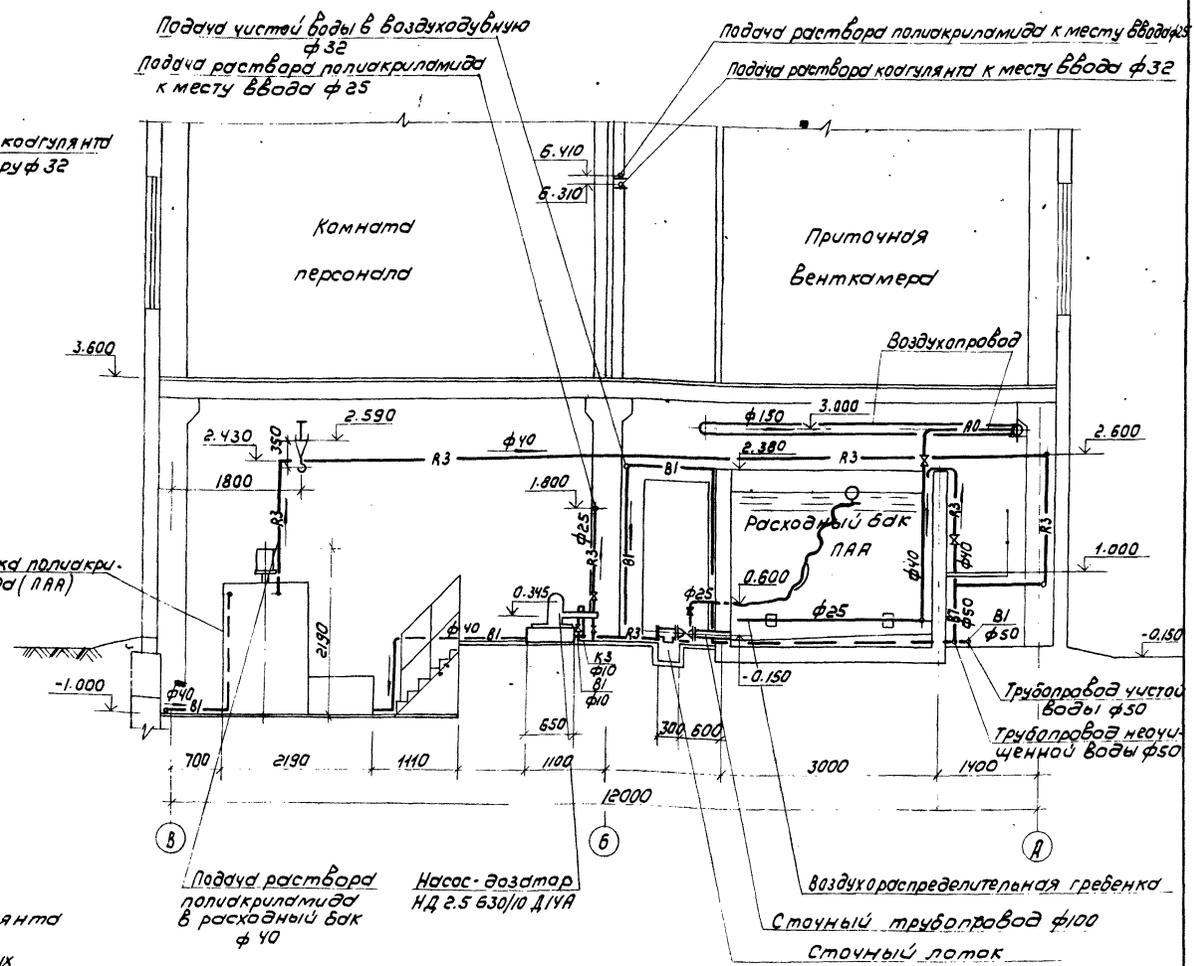 Подача чистой воды в воздуходувную
ф 32
Подача раствора полиакриламида
к месту ввода ф 25
Подача раствора полиакриламида к месту ввода ф25
Подача раствора коагулянта к месту ввода ф 32
коагулянта
ру ф 32
6.410
6.310
Комната
персонала
Приточная
венткамера
3.600
Воздухопровод
2.590
2.430
350
ф40
R3
1800
R3
ф150
3.000
А0
2.380
R3
2.600
В1
1.800
ф25
R3
В1
Расходный бак
ПАА
R3
ф40
ф40
R3
1.000
ка полиакри-
да (ПАА)
2190
0.345
0.600
ф25
ф25
В7
ф50
В1
ф50
ф 40
В1
R3
К3
ф10
В1
ф10
-0.150
-0.150
-1.000
ф40
В1
Трубопровод чистой
воды ф50
Трубопровод неочи-
щенной воды ф50
650
300
600
700
2190
1110
1100
3000
1400
12000
В
Б
А
Подача раствора
полиакриламида
в расходный бак
ф 40
Насос-дозатор
НД 2.5 630/10 Д14А
Воздухораспределительная гребенка
Сточный трубопровод ф100
Сточный лоток
янта
ых